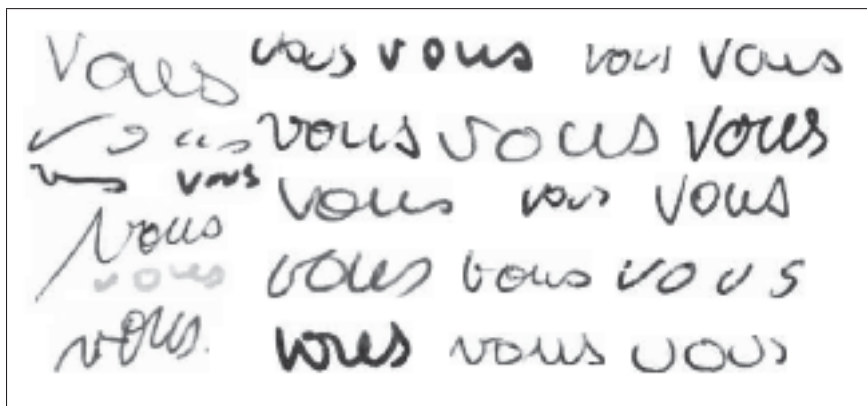 Vous vous vous vous vous
vous vous vous vous
vous vous vous vous vous
vous
vous vous vous vous
vous. vous vous vous